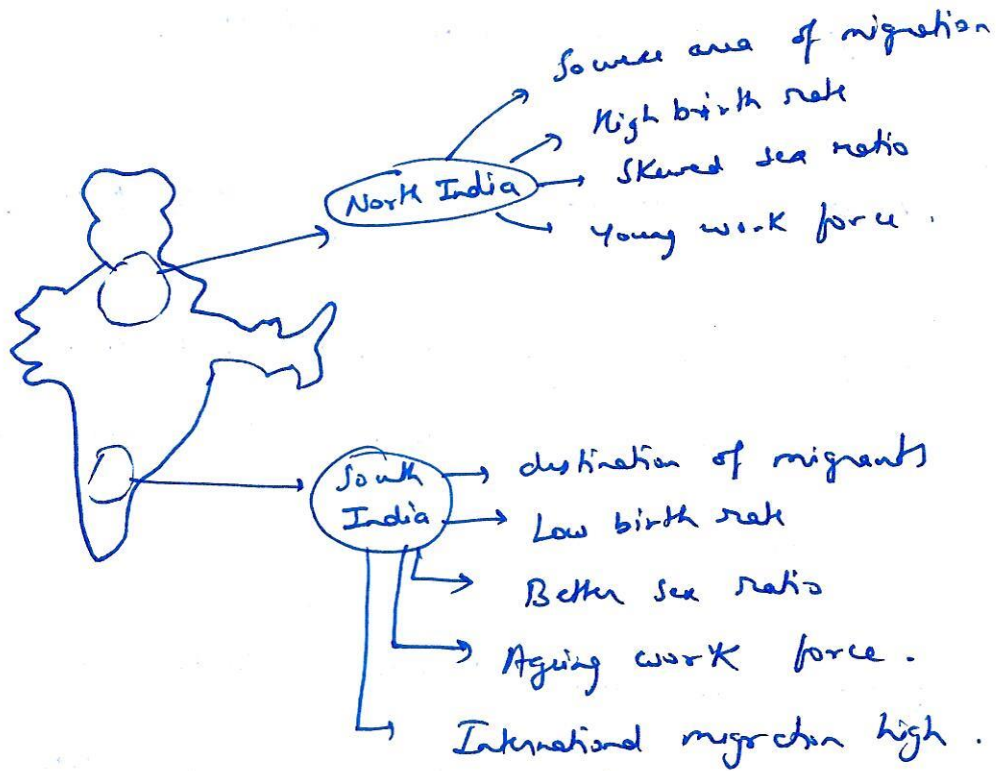 Source area of migration
High birth rate
Skewed sex ratio
Young work force.
North India
South
India
destination of migrants
Low birth rate
Better sex ratio
Ageing work force.
International migration high.